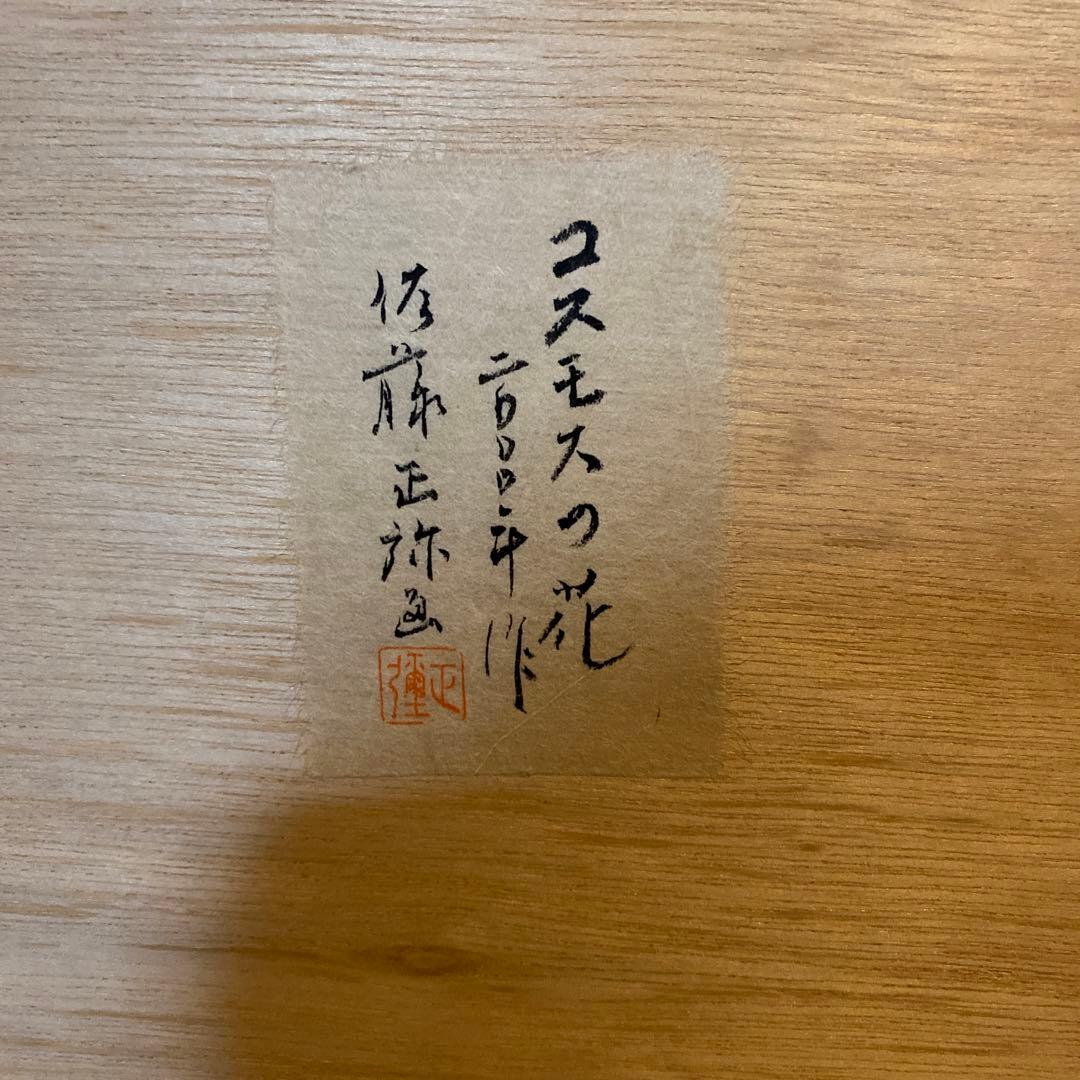 コスモスの花
二〇〇〇年作
佐藤正弥画
正彌